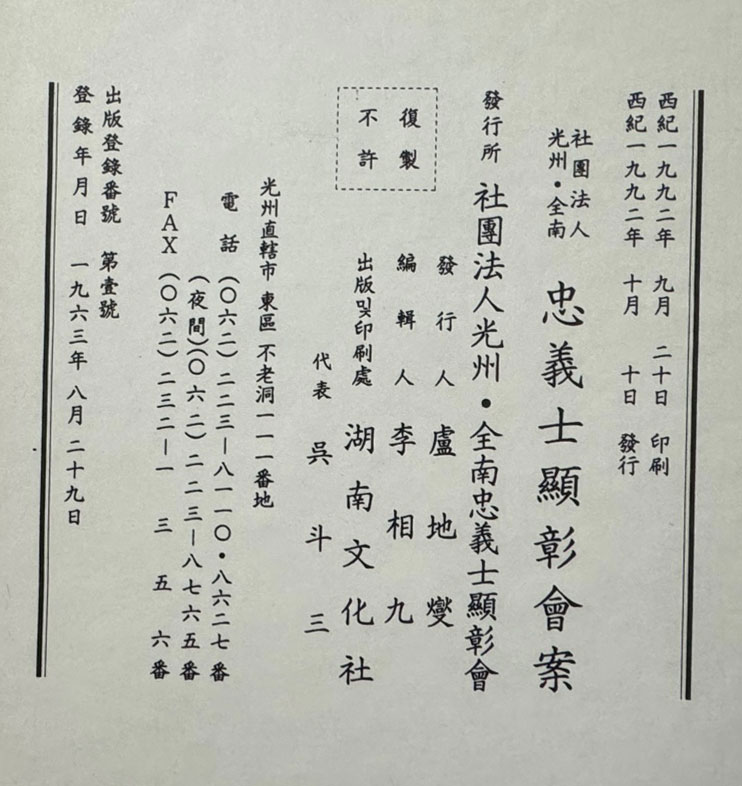 西紀一九九二年 九月 二十日 印刷
西紀一九九二年 十月 十日 發行
社團法人
光州•全南
忠義士顯彰會案
發行所 社團法人光州•全南忠義士顯彰會
發行人 盧地燮
編輯人 李相九
出版및印刷處 湖南文化社
代表 吳斗三
復製
不許
光州直轄市 東區 不老洞一一一番地
電話 (〇六二)二二三—八一一〇•八六二七番
(夜間)(〇六二)二二三—八七六五番
FAX (〇六二)二三二—一三五六番
出版登錄番號 第壹號
登錄年月日 一九六三年 八月 二十九日